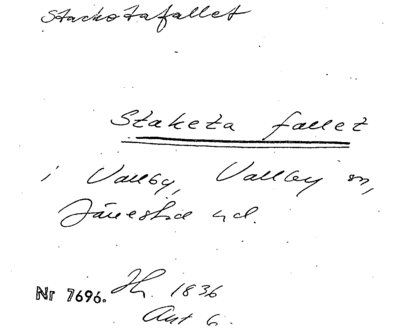 Stackotafallet
Staketa fallet
i Vallby, Vallby sn,
Järrestad hd.
Nr 7696. Jh. 1836
Akt 6.